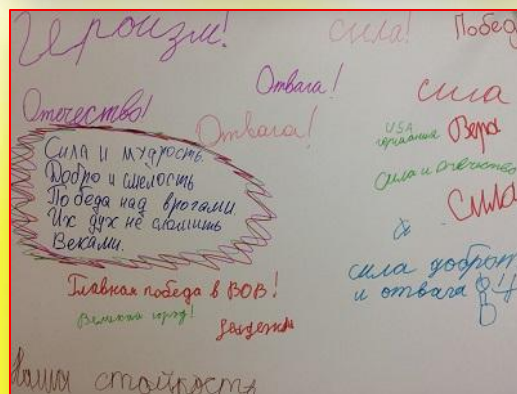 Героизм!
Сила!
Побед
Отвага!
Сила
Отечество!
Отвага!
USA
германия
Вера
Сила и мудрость.
Добро и смелость
Победа над врагами.
Их дух не сломить
Веками.
Сила и отечество
Сила
сила доброта
и отвага
Главная победа в ВОВ!
Великий город!
Надежда
Наша стойкость